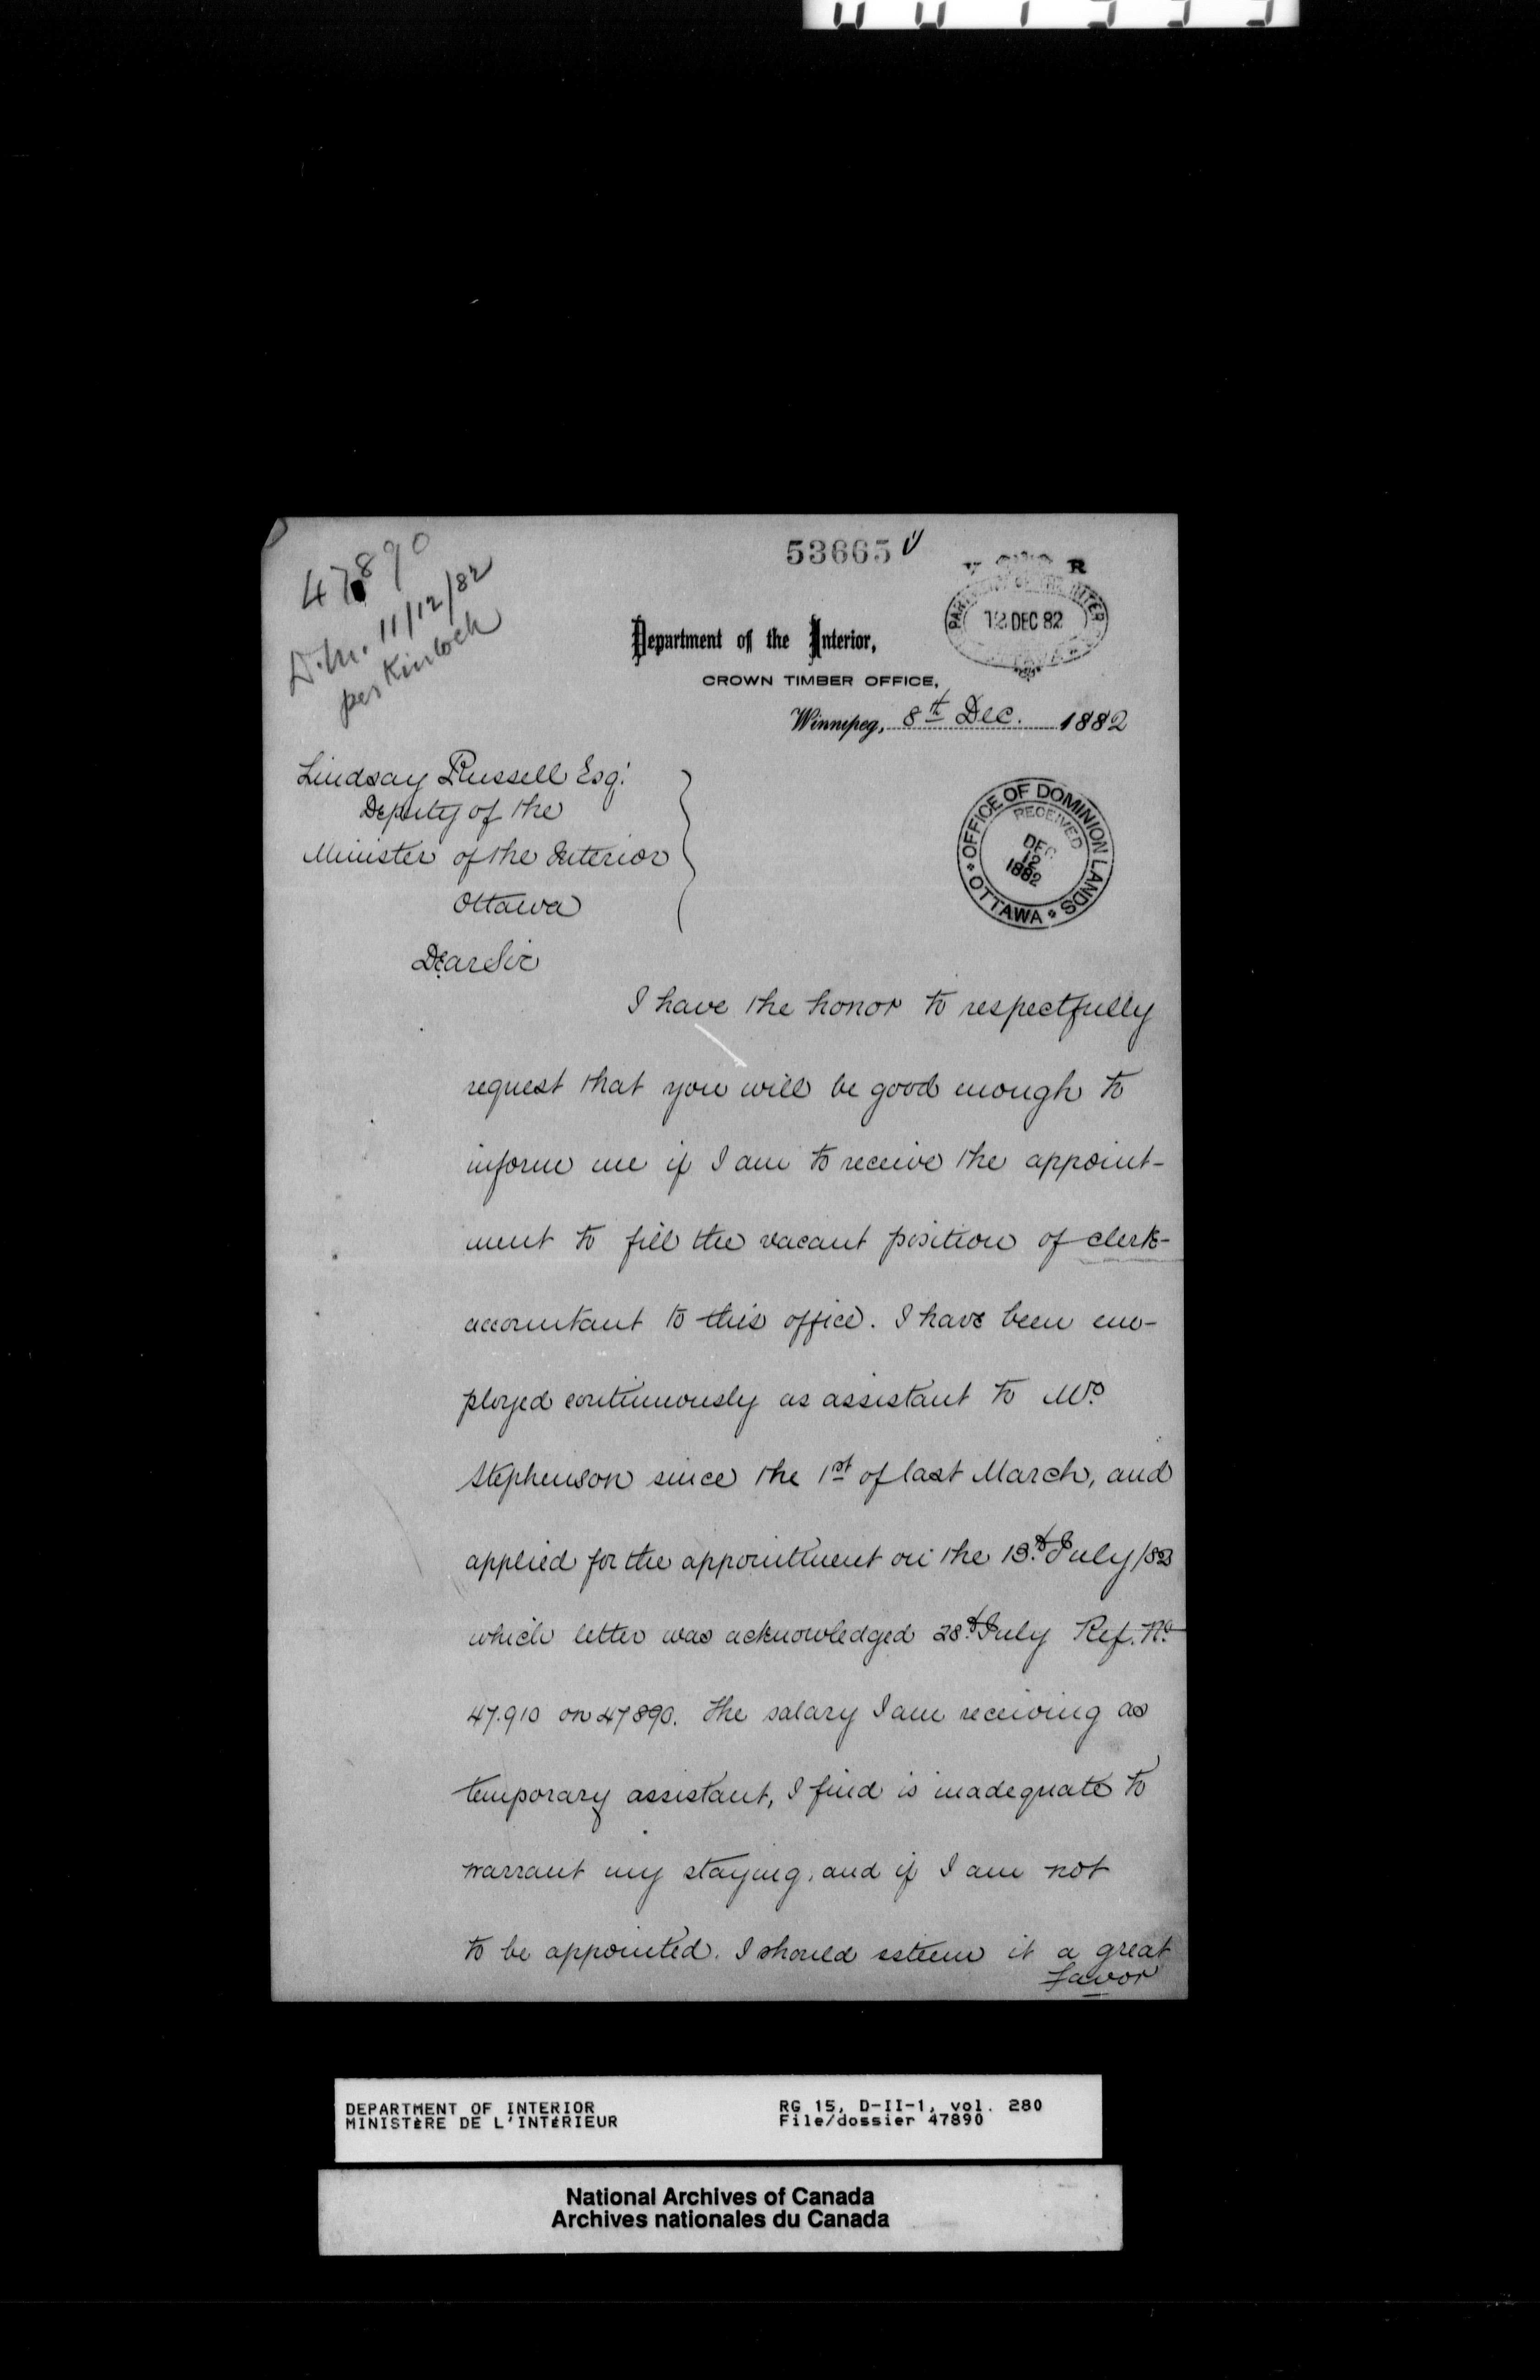 47890
D.M. 11/12/82
per Kinloch
53665
12 DEC 82
Department of the Interior,
CROWN TIMBER OFFICE,
Winnipeg, 8th Dec. 1882
Lindsay Russell Esq.
Deputy of the
Minister of the Interior
Ottawa
OFFICE OF DOMINION LANDS
RECEIVED
DEC
12
1882
OTTAWA
Dear Sir
I have the honor to respectfully
request that you will be good enough to
inform me if I am to receive the appoint-
ment to fill the vacant position of clerk-
accountant to this office. I have been em-
ployed continuously as assistant to Mr.
Stephenson since the 1st of last March, and
applied for the appointment on the 13th July /82
which letter was acknowledged 28th July Ref. No.
47.910 on 47890. The salary I am receiving as
temporary assistant, I find is inadequate to
warrant my staying, and if I am not
to be appointed. I should esteem it a great
favor
DEPARTMENT OF INTERIOR
MINISTÈRE DE L'INTÉRIEUR
RG 15, D-II-1, vol. 280
File/dossier 47890
National Archives of Canada
Archives nationales du Canada